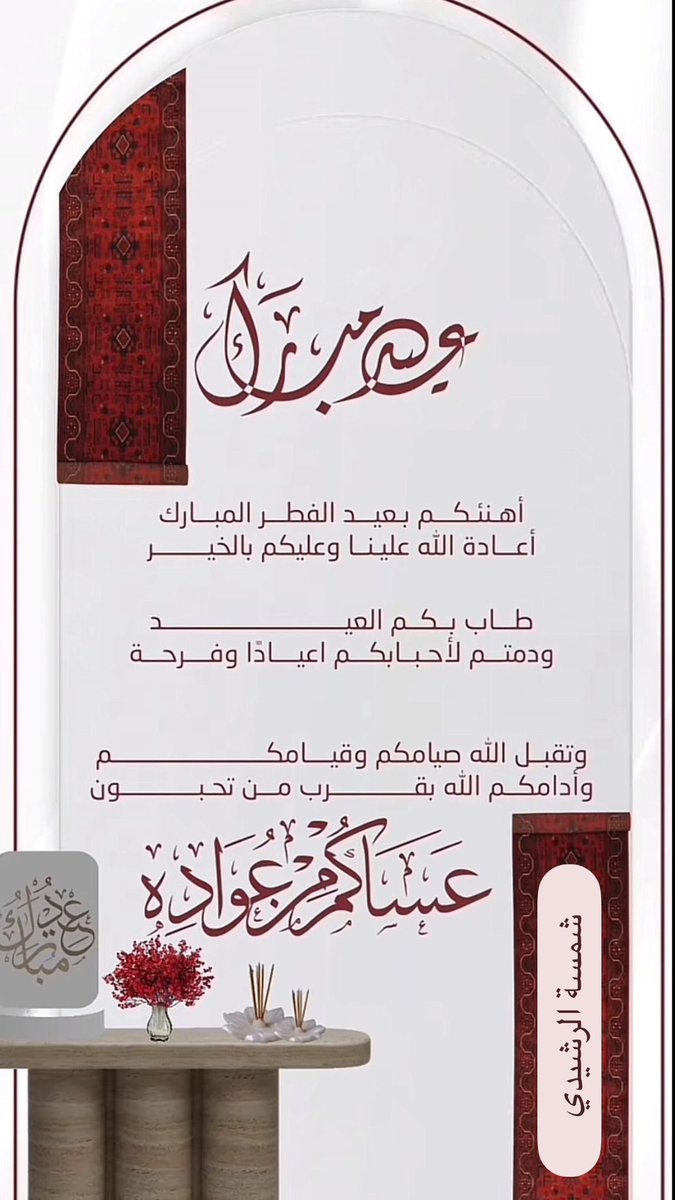 عيد مبارك
أهنئكم بعيد الفطر المبارك
أعادة الله علينا وعليكم بالخير
طاب بكم العيد
ودمتم لأحبابكم اعيادًا وفرحة
وتقبل الله صيامكم وقيامكم
وأدامكم الله بقرب من تحبون
عَسَاكُم مِّن عُوَادِه
عيد مبارك
شمسة الرشيدي